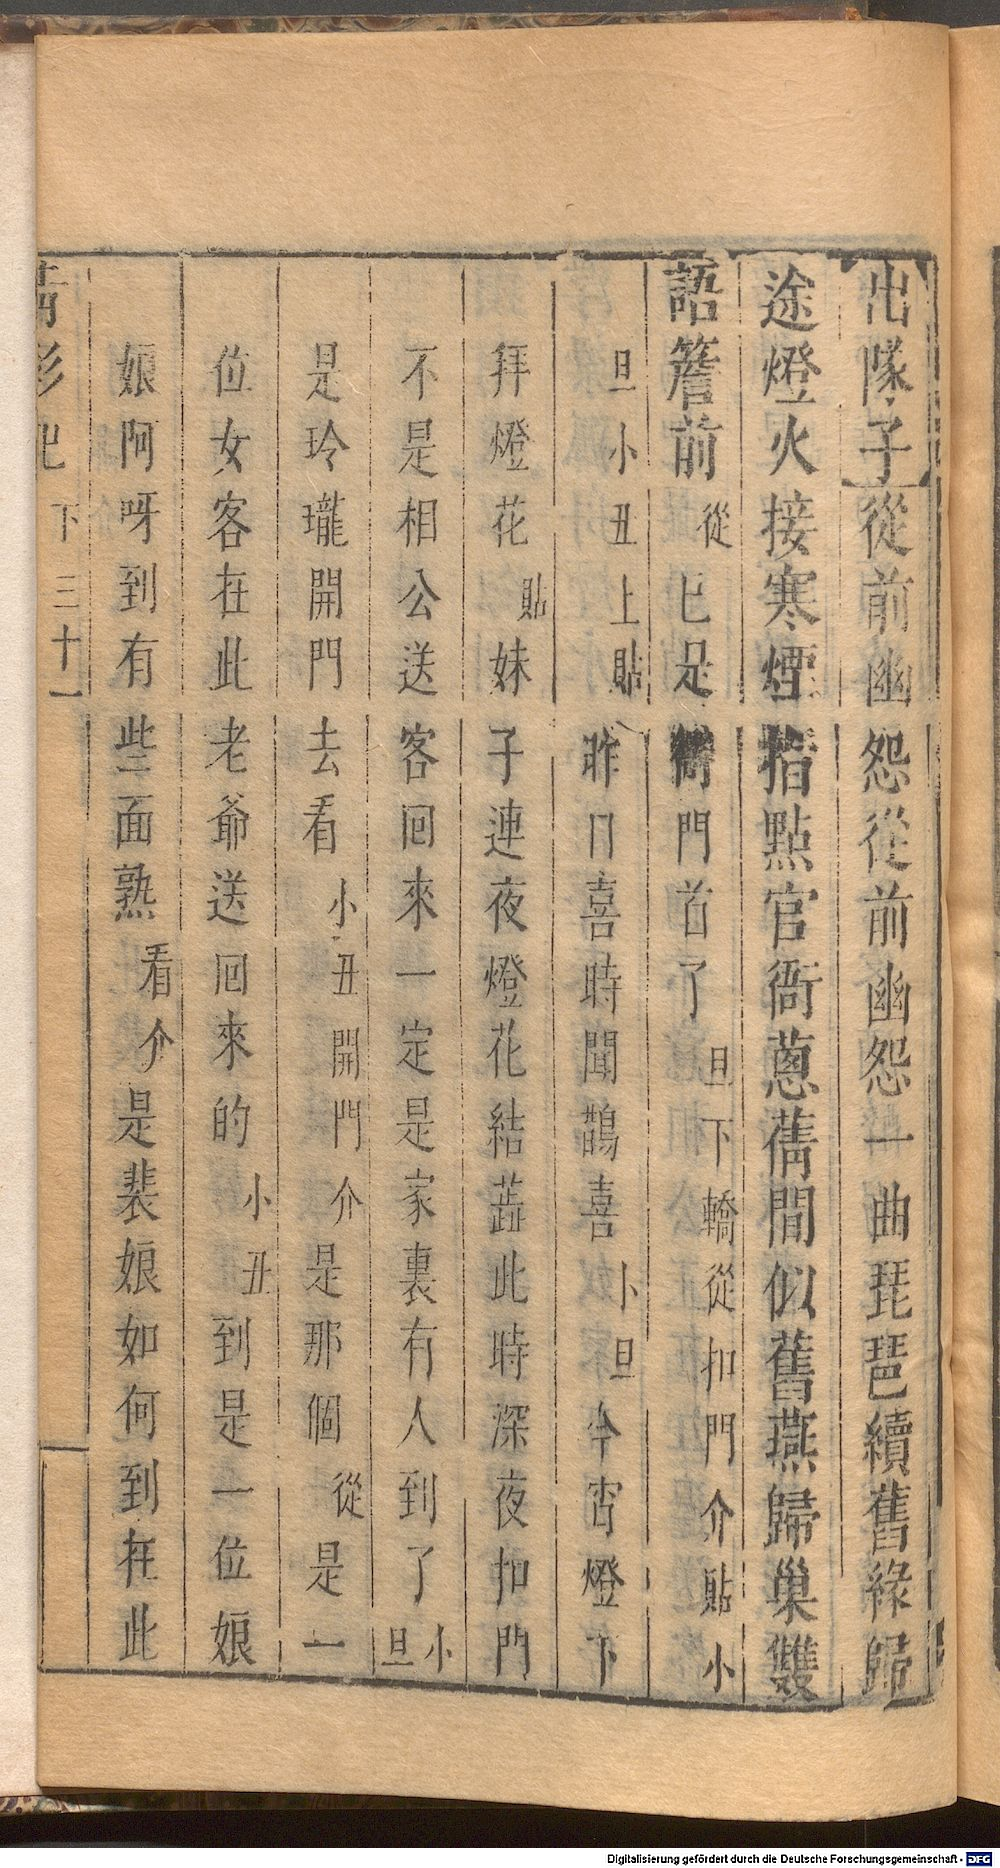 出隊子從前幽怨從前幽怨一曲琵琶續舊緣歸
途燈火接寒煙指點官衙蔥蒨間似舊燕歸巢雙
語簷前從已是衙門首了旦下轎從扣門介貼小
旦小丑上貼昨日喜時聞鵲喜小旦今宵燈下
拜燈花貼妹子連夜燈花結蕋此時深夜扣門
不是相公送客回來一定是家裏有人到了小旦
是玲瓏開門去看小丑開門介是那個從是一
位女客在此老爺送回來的小丑到是一位娘
娘阿呀到有些面熟看介是裴娘如何到在此
下 三十一
Digitalisierung gefördert durch die Deutsche Forschungsgemeinschaft - DFG